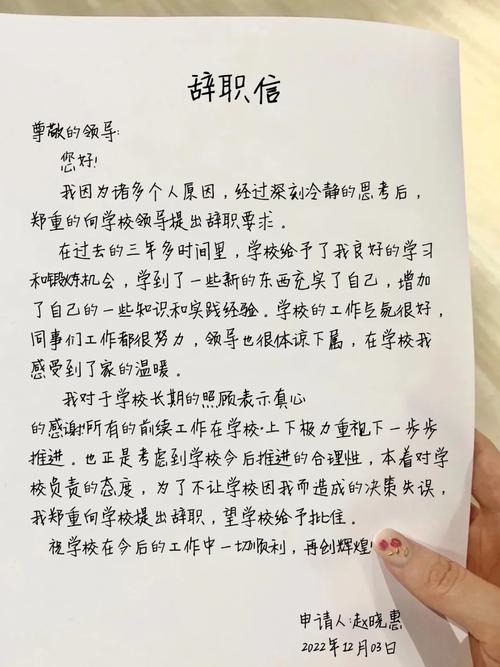 辞职信
尊敬的领导:
您好!
我因为诸多个人原因，经过深刻冷静的思考后，
郑重的向学校领导提出辞职要求。
在过去的三年多时间里，学校给予了我良好的学习
和锻炼机会，学到了一些新的东西充实了自己，增加
了自己的一些知识和实践经验。学校的工作气氛很好，
同事们工作都很努力，领导也很体谅下属，在学校我
感受到了家的温暖。
我对于学校长期的照顾表示真心
的感谢!所有的前续工作在学校·上下极力重视下一步步
推进。也正是考虑到学校今后推进的合理性，本着对学
校负责的态度，为了不让学校因我而造成的决策失误，
我郑重向学校提出辞职，望学校给予批准。
祝学校在今后的工作中一切顺利，再创辉煌!
申请人:赵晓惠
2022年12月03日